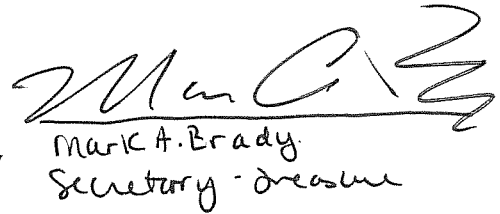 Mark A. Brady.
Secretary - Treasure